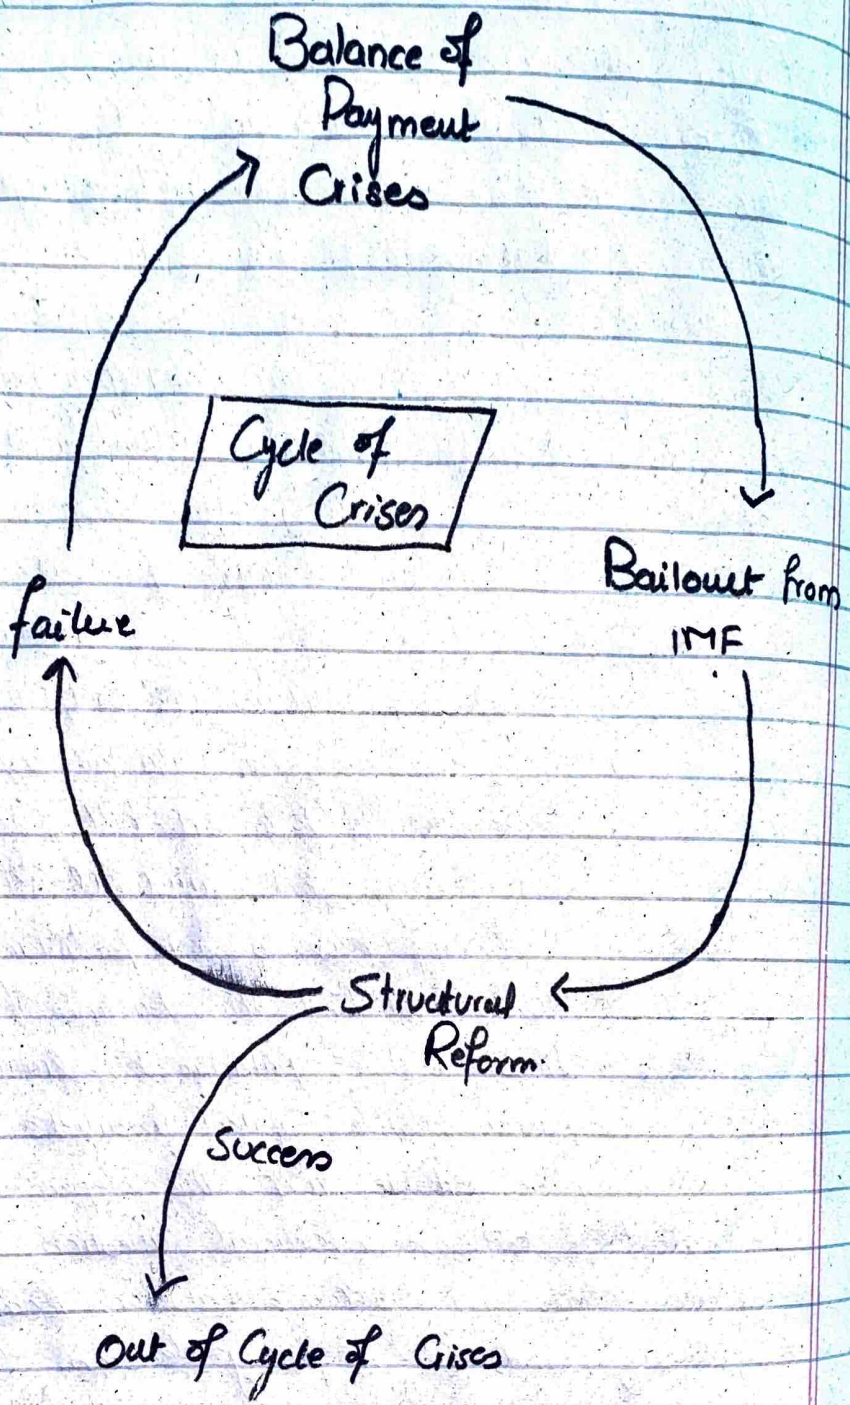 Balance of
Payment
Crises
Cycle of
Crises
Bailout from
IMF
failure
Structural
Reform.
Success
Out of Cycle of Crises